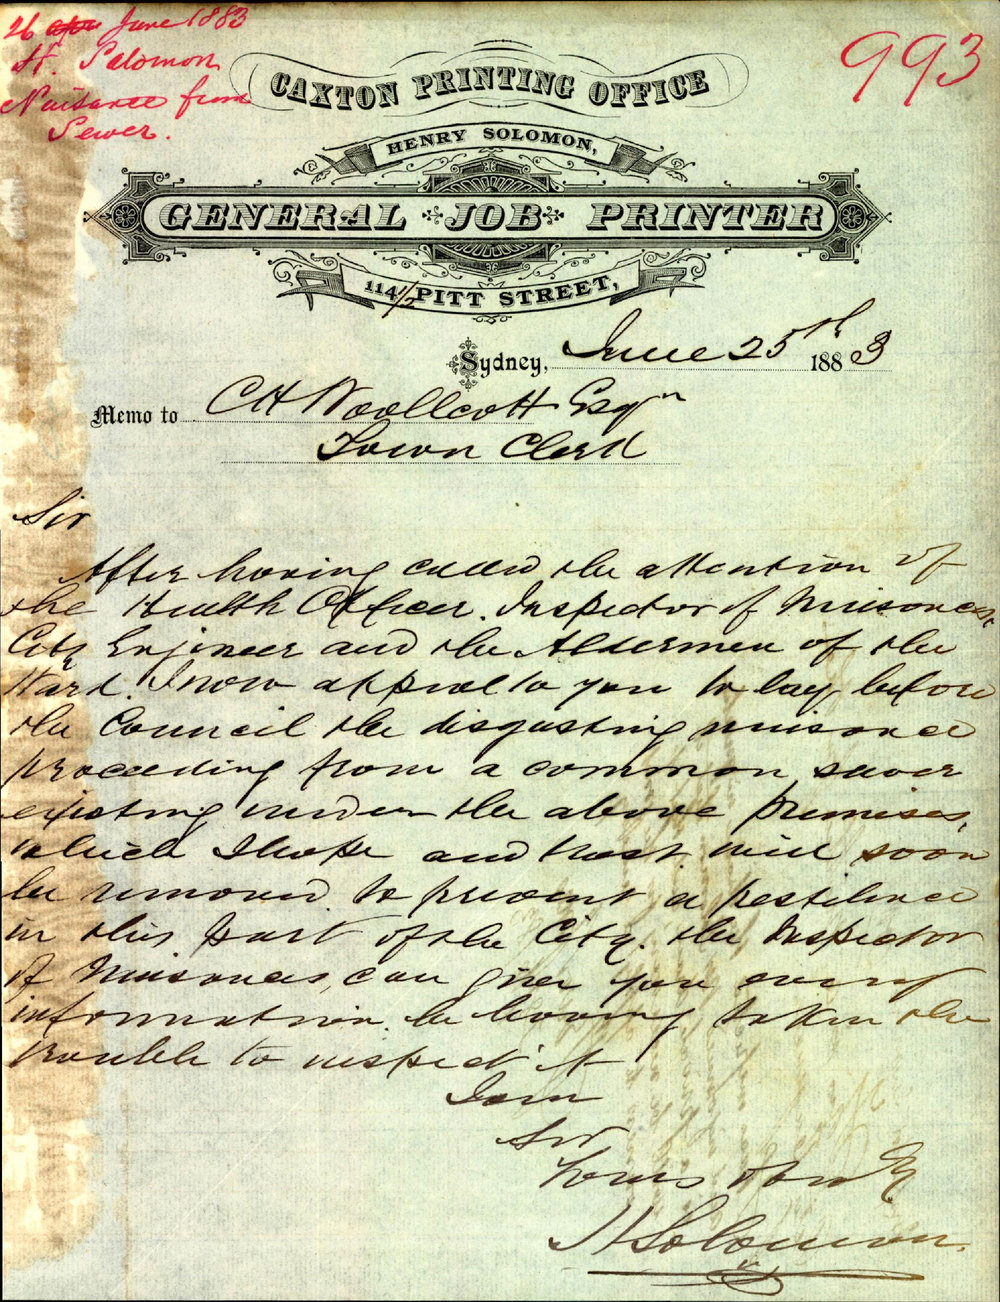 26 June 1883
H. Solomon
Nuisance from
Sewer.
993
CAXTON PRINTING OFFICE
HENRY SOLOMON,
GENERAL JOB PRINTER
114 1/2 PITT STREET,
Sydney, June 25th 1883
Memo to C H Woollcott Esqr
Town Clerk
Sir
After having called the attention of
the Health Officer. Inspector of Nuisances
City Engineer and the Aldermen of the
Ward. I now appeal to you to lay before
the Council the disgusting nuisance
proceeding from a common sewer
existing under the above premises,
which I hope and trust will soon
be removed to prevent a pestilence
in this part of the City. the Inspector
of Nuisances, can give you every
information. he having taken the
trouble to inspect it
I am
Sir
Yours truly
H Solomon.